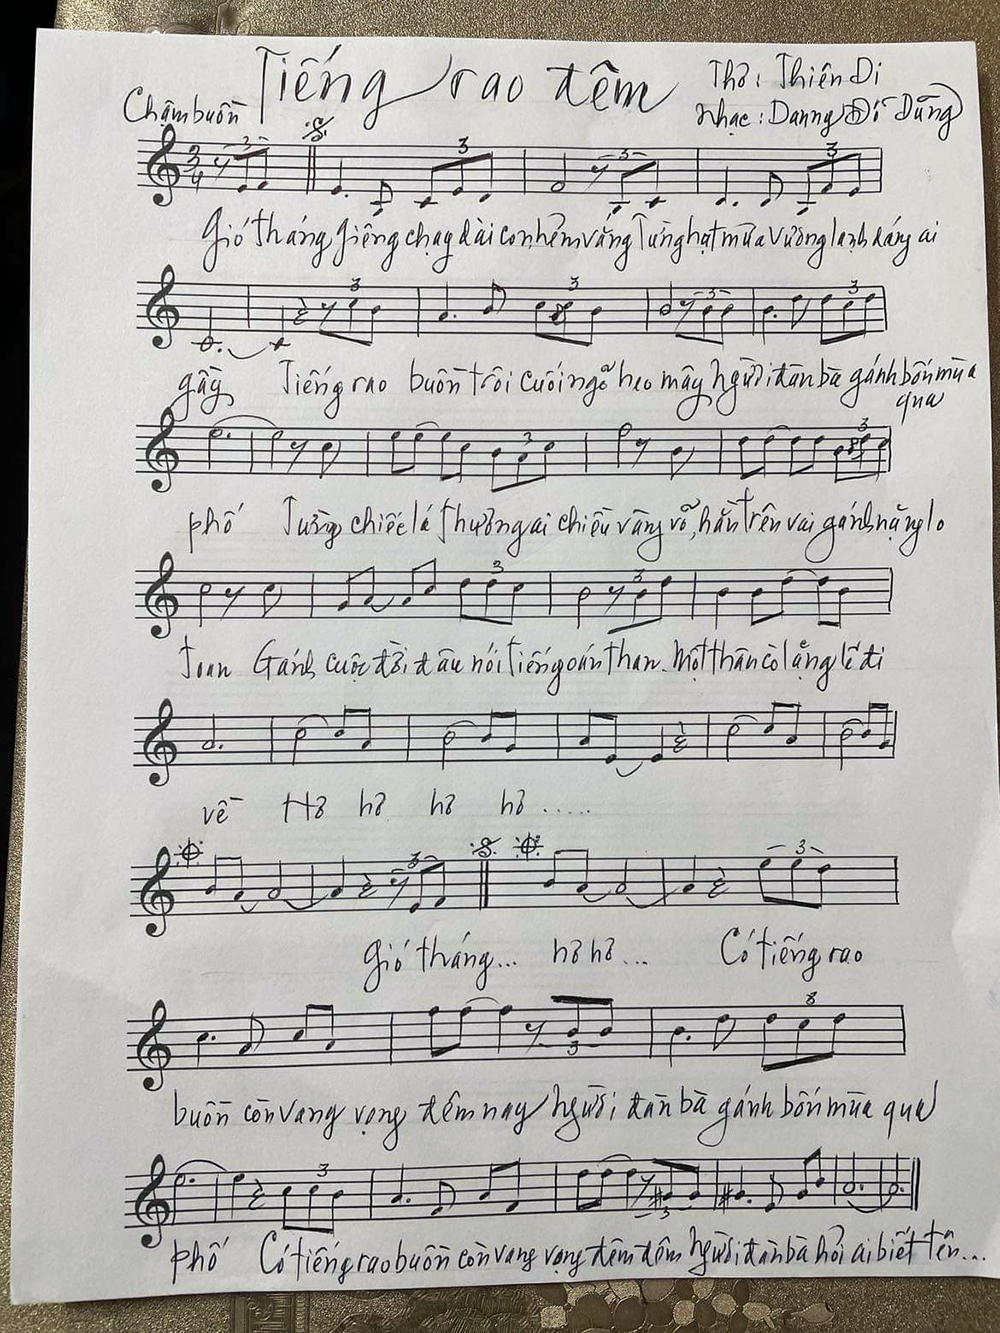 Tiếng rao đêm
Thơ: Thiên Di
Chậm buồn
Nhạc: Danny Đỗ Dũng
3
4
3
3
3
3
Gió tháng giêng chạy dài con hẻm vắng Từng hạt mưa vương lạnh dáng ai
3
3
3
3
gầy Tiếng rao buồn trôi cuối ngõ heo mây người đàn bà gánh bốn mùa
qua
3
3
phố Tưởng chiếc lá thương ai chiều vàng võ, hằn trên vai gánh nặng lo
3
3
toan Gánh cuộc đời đâu nói tiếng oán than. Một thân cò lặng lẽ đi
về Hờ hờ hờ hờ .....
3
3
Gió tháng... hờ hờ ... Có tiếng rao
3
3
buồn còn vang vọng đêm nay người đàn bà gánh bốn mùa qua
3
3
phố Có tiếng rao buồn còn vang vọng đêm đêm người đàn bà hỏi ai biết tên...